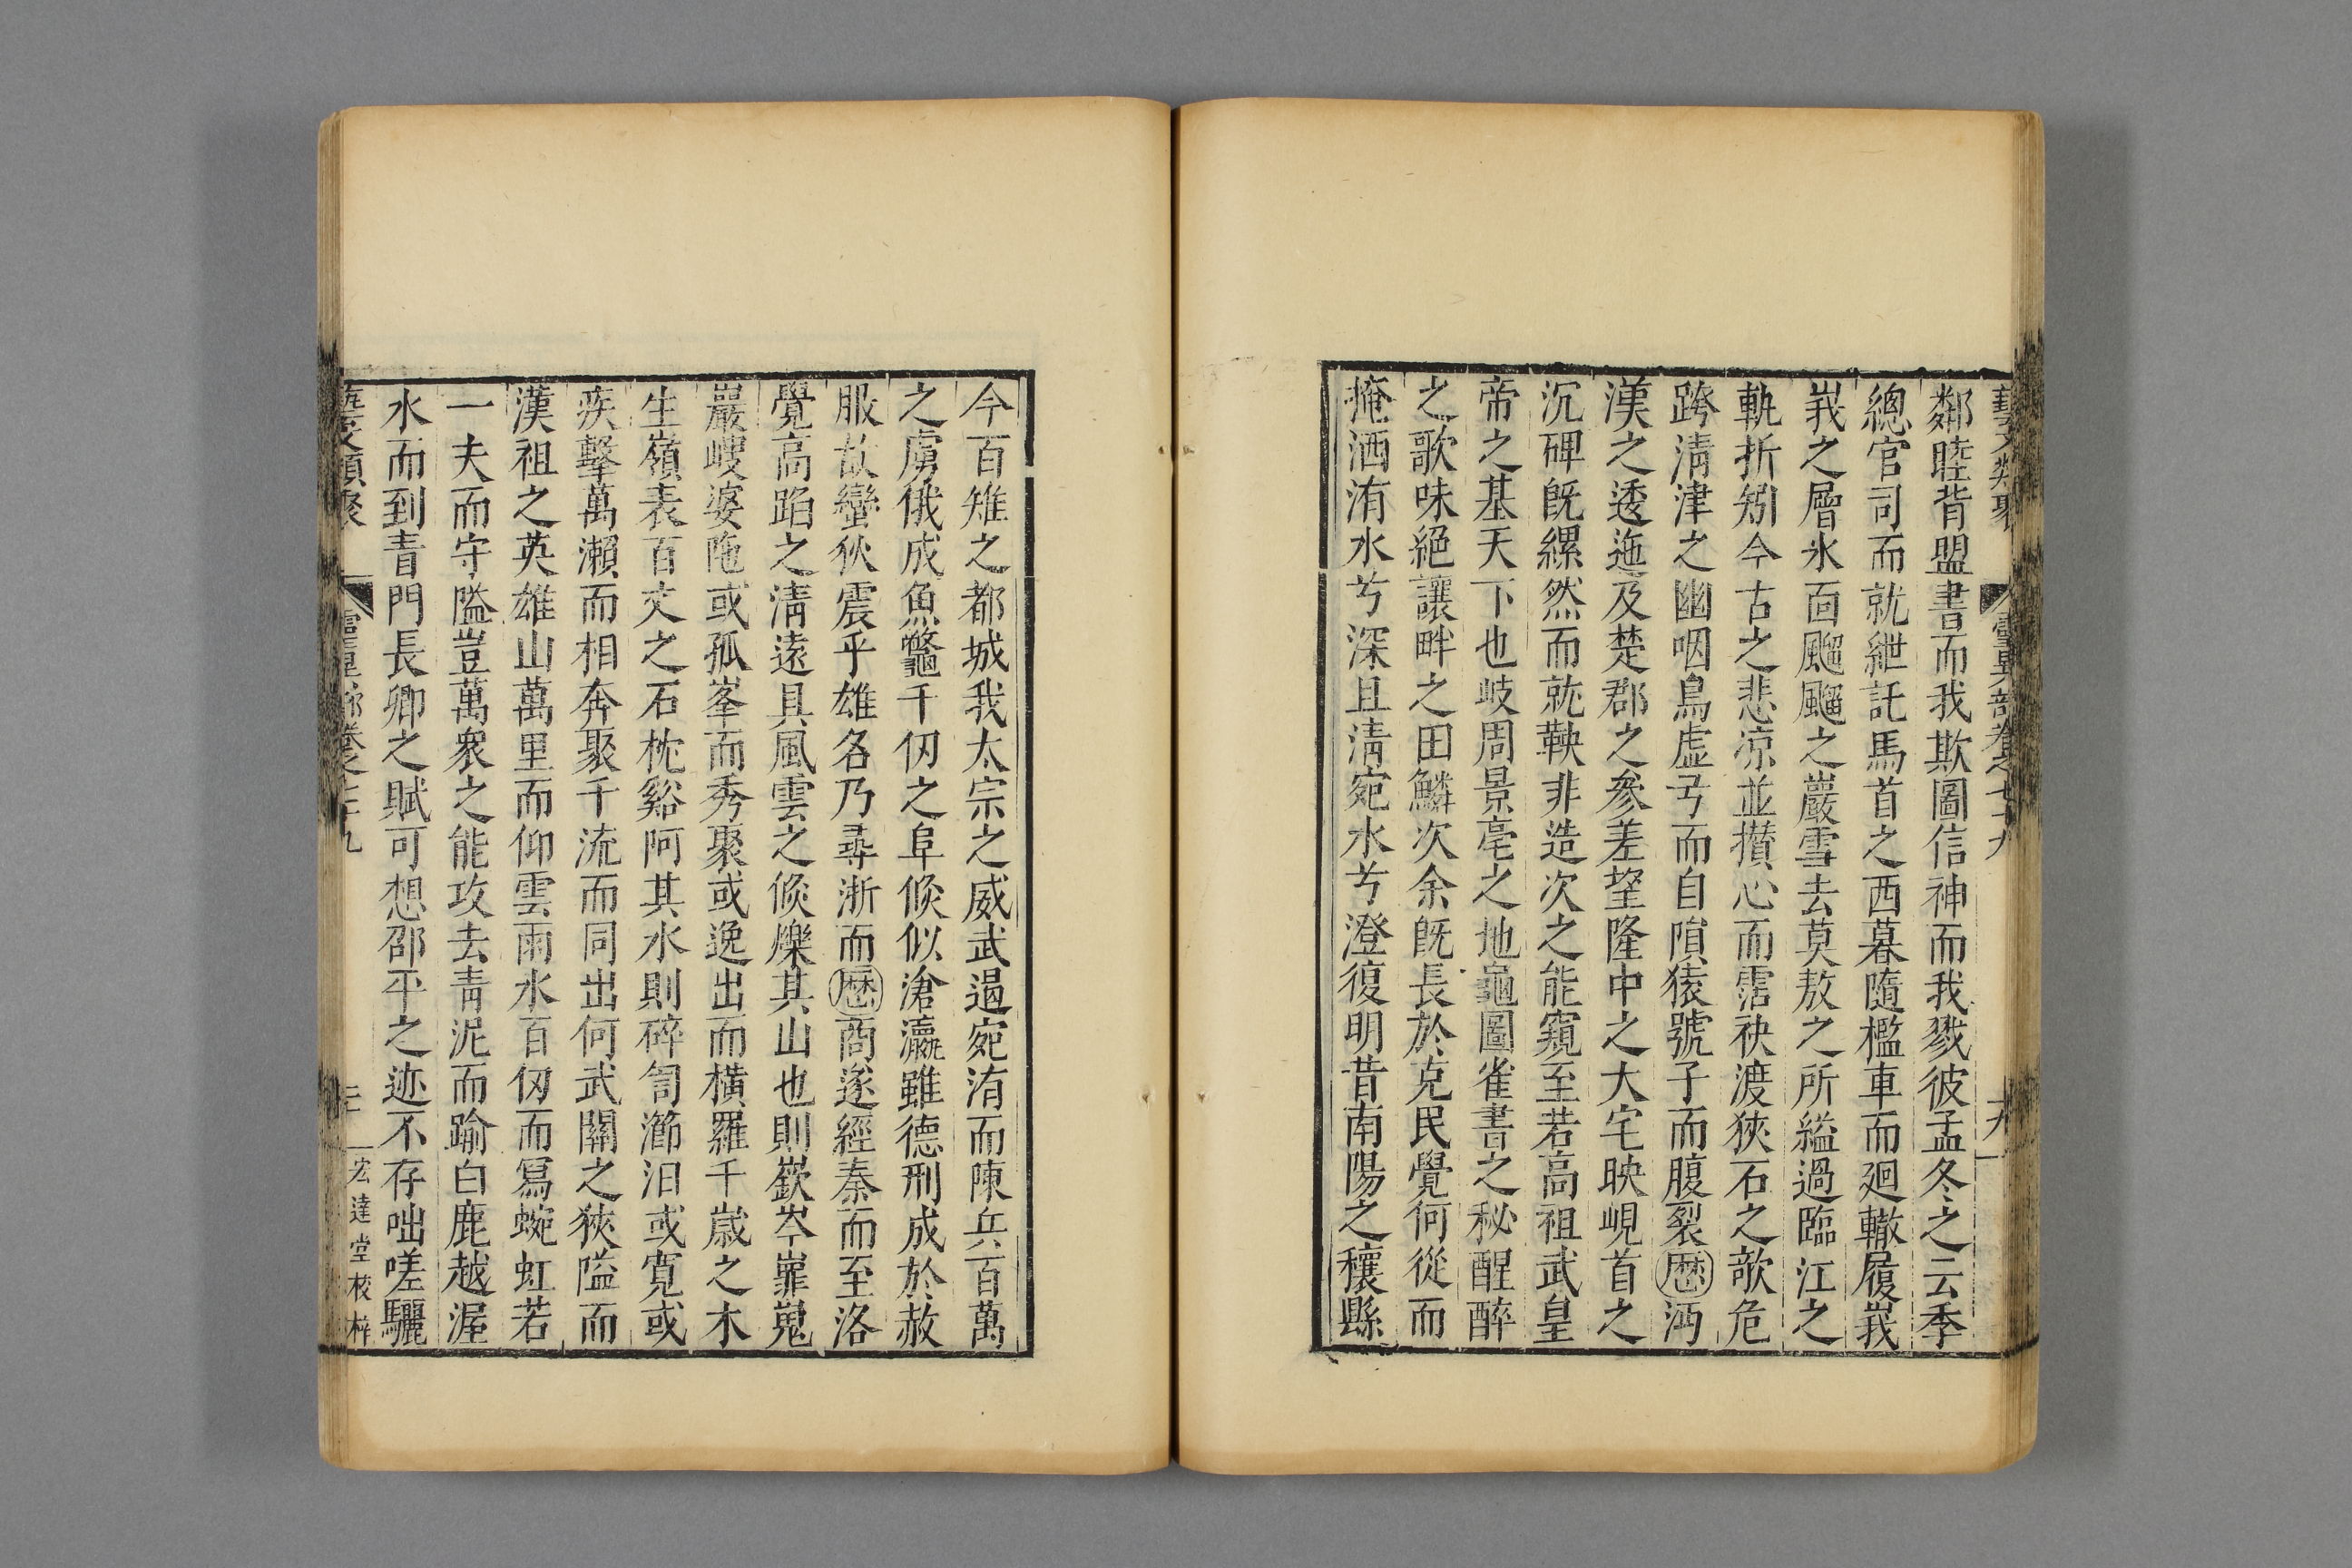 藝文類聚 靈異部卷之七十九 十九
鄰睦背盟書而我欺圖信神而我戮彼孟冬之云季
總官司而就紲託馬首之西暮隨檻車而廻轍履峩
峩之層氷面颸颸之巖雪去莫敖之所縊過臨江之
軌折矧今古之悲凉並攅心而霑袂渡狹石之欹危
跨清津之幽咽鳥虛弓而自隕猿號子而腹裂歷沔
漢之逶迤及楚郡之參差望隆中之大宅映峴首之
沉碑旣纍然而就鞅非造次之能窺至若高祖武皇
帝之基天下也岐周景亳之地龜圖雀書之秘醒醉
之歌味絕讓畔之田鱗次余旣長於克民覺何從而
掩洒洧水兮深且清宛水兮澄復明昔南陽之穰縣
今百雉之都城我太宗之威武遏宛洧而陳兵百萬
之虜俄成魚鼈千仞之阜倐似滄瀛雖德刑成於赦
服故蠻狄震乎雄名乃尋浙而歷商遂經秦而至洛
覺高蹈之清遠具風雲之倐爍其山也則嶔岑嶵嵬
巖崚婆陁或孤峯而秀聚或逸出而橫羅千歲之木
生嶺表百丈之石枕谿阿其水則碎訇瀄汨或寬或
疾擊萬瀨而相奔聚千流而同出何武關之狹隘而
漢祖之英雄山萬里而仰雲雨水百仞而寫蜿虹若
一夫而守隘豈萬衆之能攻去青泥而踰白鹿越渥
水而到青門長卿之賦可想邵平之迹不存咄嗟驪
藝文類聚 靈異部卷之七十九 二十 宏達堂校梓